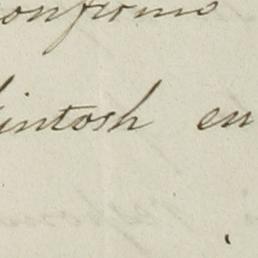 confirmo
intosh en